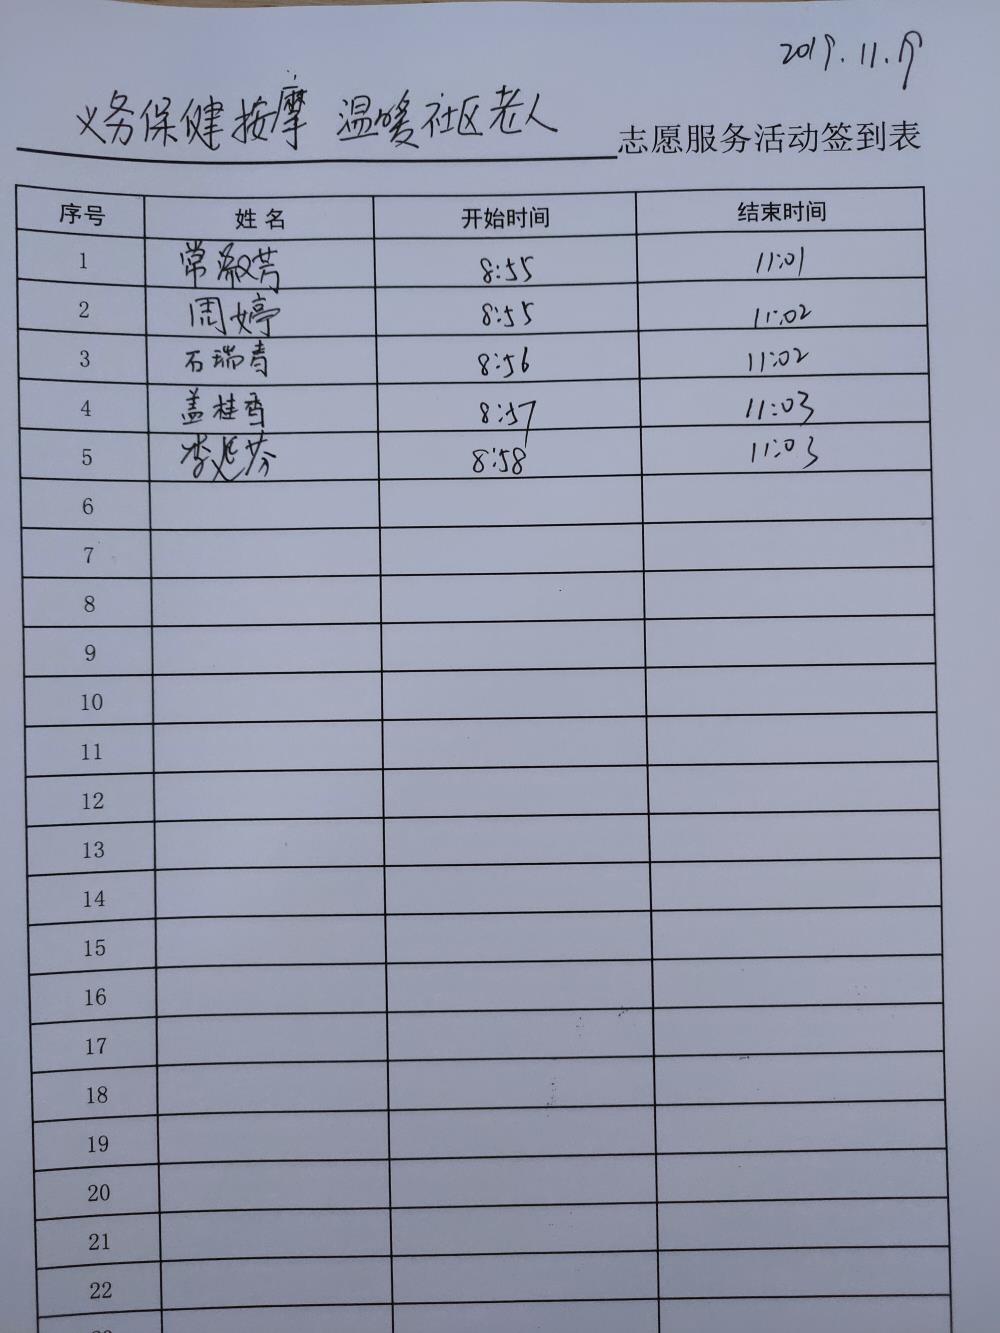 2019.11.9
义务保健按摩 温暖社区老人 志愿服务活动签到表
序号 姓名 开始时间 结束时间
1 常淑芳 8:55 11:01
2 周婷 8:55 11:02
3 石瑞青 8:56 11:02
4 盖桂香 8:57 11:03
5 李延芬 8:58 11:03
6
7
8
9
10
11
12
13
14
15
16
17
18
19
20
21
22